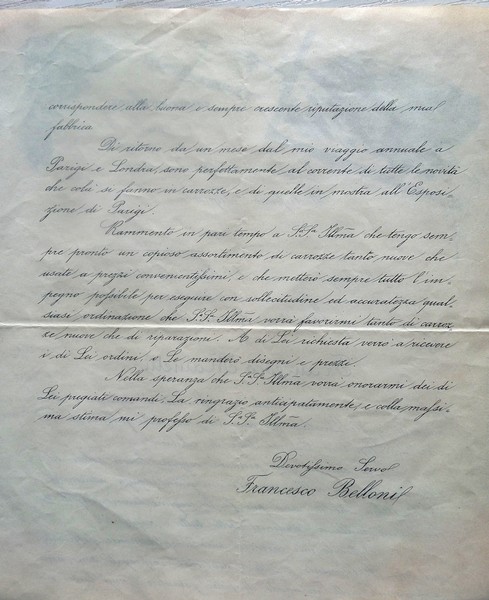 corrispondere alla buona e sempre crescente riputazione della mia
fabbrica
Di ritorno da un mese dal mio viaggio annuale a
Parigi e Londra, sono perfettamente al corrente di tutte le novità
che colà si fanno in carrozze, e di quelle in mostra all'Esposi=
zione di Parigi.
Rammento in pari tempo a S.ª S.ª Illm̃a che tengo sem=
pre pronto un copioso assortimento di carrozze tanto nuove che
usate a prezzi convenientissimi, e che metterò sempre tutto l'im=
pegno possibile per eseguire con sollecitudine ed accuratezza qual=
siasi ordinazione che S.ª S.ª Illm̃a vorrà favorirmi tanto di carroz=
ze nuove che di riparazione. A di Lei richiesta verrò a ricevere
i di Lei ordini, o Le manderò disegni e prezzi.
Nella speranza che S.ª S.ª Illm̃a vorrà onorarmi dei di
Lei pregiati comandi, La ringrazio anticipatamente, e colla massi=
ma stima mi professo di S.ª S.ª Illm̃a.
Devotissimo Servo
Francesco Belloni